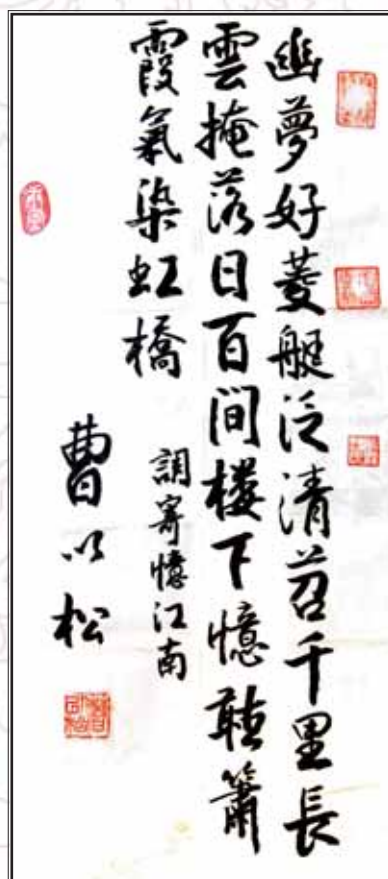 幽夢好菱艇泛清苕千里長
雲掩落日百间楼下憶聴簫
霞氣染虹橋
調寄憶江南
曹以松